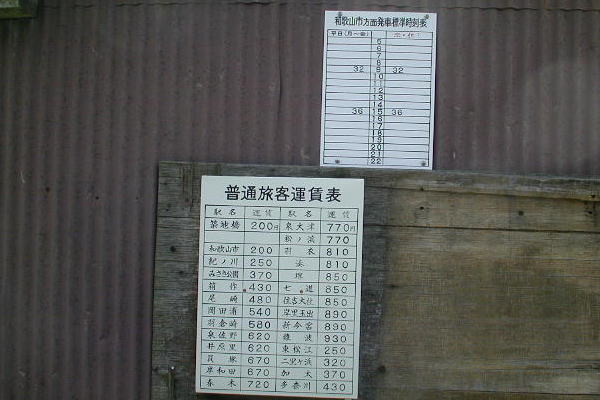 和歌山市方面発車標準時刻表
平日(月～金) 土・休日
5
6
7
8
32 9 32
10
11
12
13
14
36 15 36
16
17
18
19
20
21
22
普通旅客運賃表
駅名 運賃 駅名 運賃
築地橋 200円 泉大津 770円
松ノ浜 770
和歌山市 200 羽衣 810
紀ノ川 250 湊 810
みさき公園 370 堺 850
箱作 430 七道 850
尾崎 480 住吉大社 850
岡田浦 540 岸里玉出 890
羽倉崎 580 新今宮 890
泉佐野 620 難波 930
井原里 620 東松江 250
貝塚 670 二里ヶ浜 320
岸和田 670 加太 370
春木 720 多奈川 430